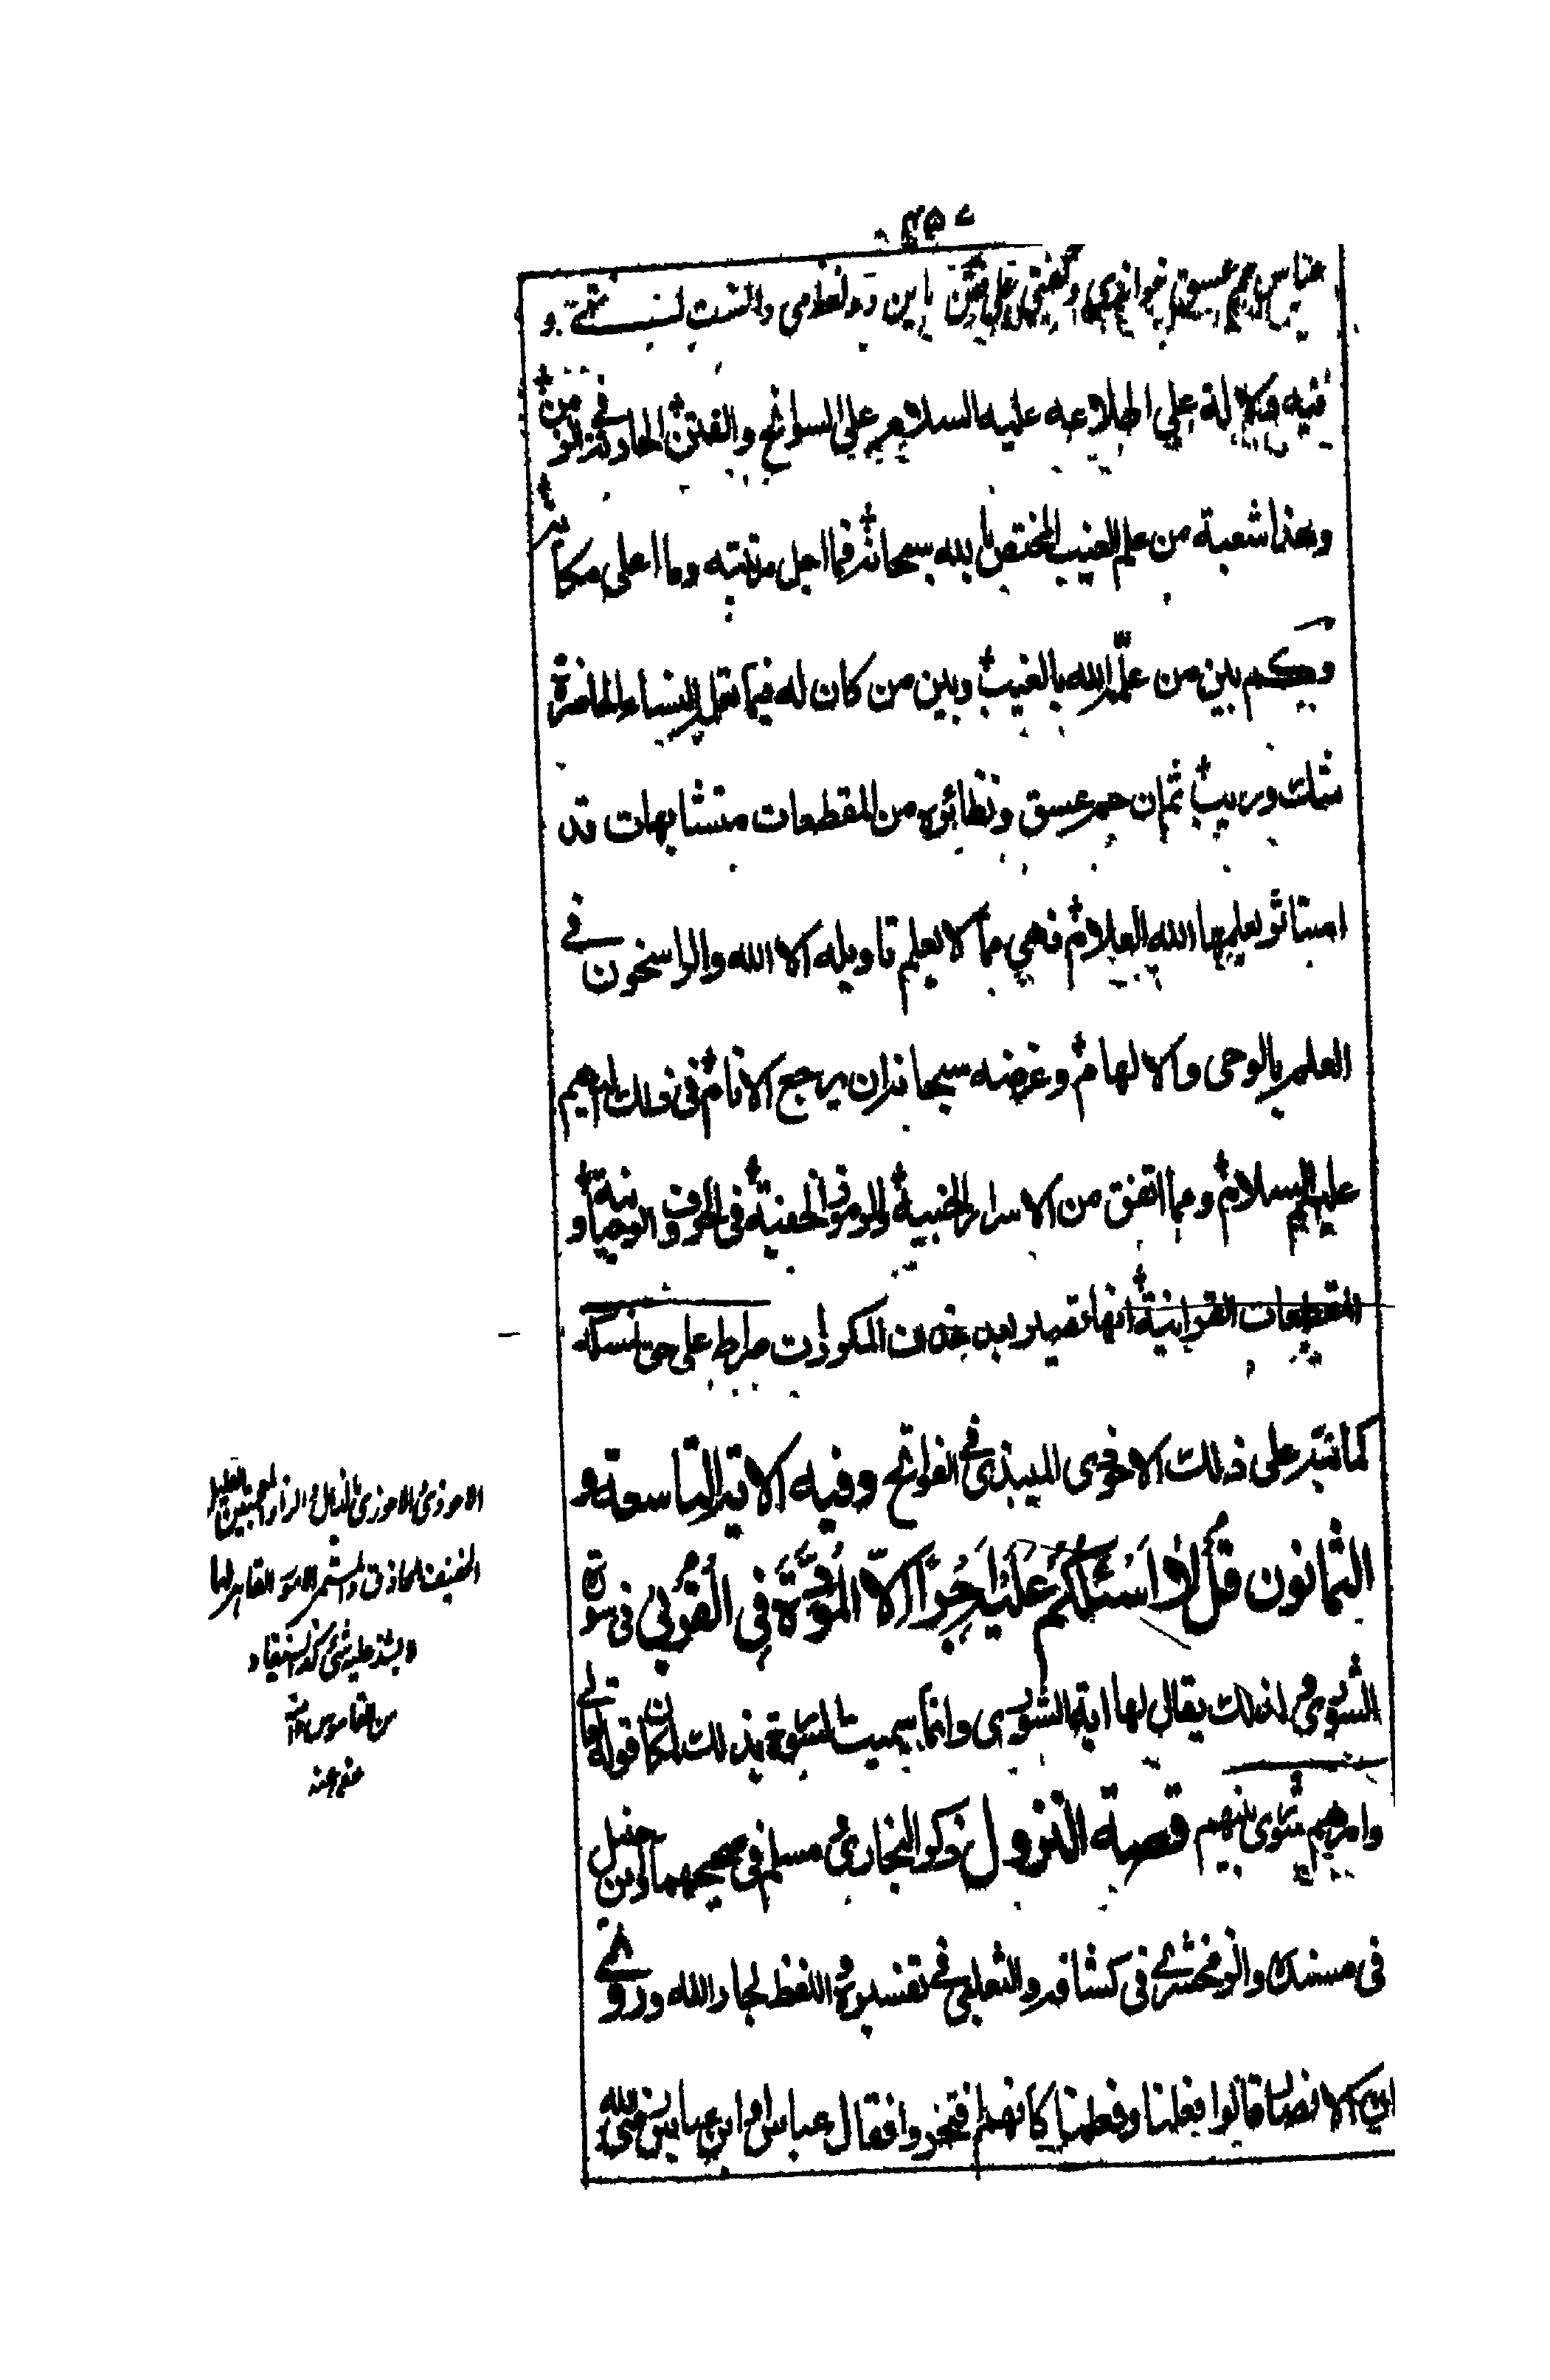 فيه دلالة على اطلاعه عليه السلام على السوانح والفتن الحادثة في الزمن
وهذا شعبة من علم الغيب المختص بالله سبحانه فما اجل مرتبته وما اعلى مكانته
وكم بين من علمه الله بالغيب وبين من كان له فيما نقل النساء الحاضرة
شك وريب ثم ان حم عسق ونظائره من المقطعات متشابهات قد
استاثر بعلمها الله العلام فهي مما لا يعلم تاويله الا الله والراسخون في
العلم بالوحى والالهام وغرضه سبحانه ان يرجع الانام فى ذلك اليهم
عليهم السلام ومما اتفق من الاسرار الخبية والرموز الخفية فى الحروف النورانية و
المقطعات القرانية انها تصير بعد حذف المكررات صراط على حق نمسكه
كما نبه على ذلك الاحوذى الميبذى في الفواتح وفيه الاية التاسعة و
الثمانون قُل لا اَسْئَلُكُم عَلَيْهِ اَجْرًا اِلّا الْمَوَدَّةَ فِى الْقُرْبى فى سورة
الشورى ولذلك يقال لها اية الشورى وانما سميت الشورى بذلك لمكان قوله تعالى
وامرهم شورى بينهم قصة النزول ذكر البخارى ومسلم فى صحيحهما وابن حنبل
فى مسنده والزمخشرى فى كشافه والثعلبى في تفسيره واللفظ لجار الله وروى
ان الانصار قالوا فعلنا وفعلنا كانهم افتخروا فقال عباس او ابن عباس رضى الله
الاحوذى والاحوزى بالذال والزاء المعجمتين
الخفيف الحاذق والمشمر للامور القاهر لها
لا يشذ عليه شئ كذا يستفاد
من القاموس
عفى عنه